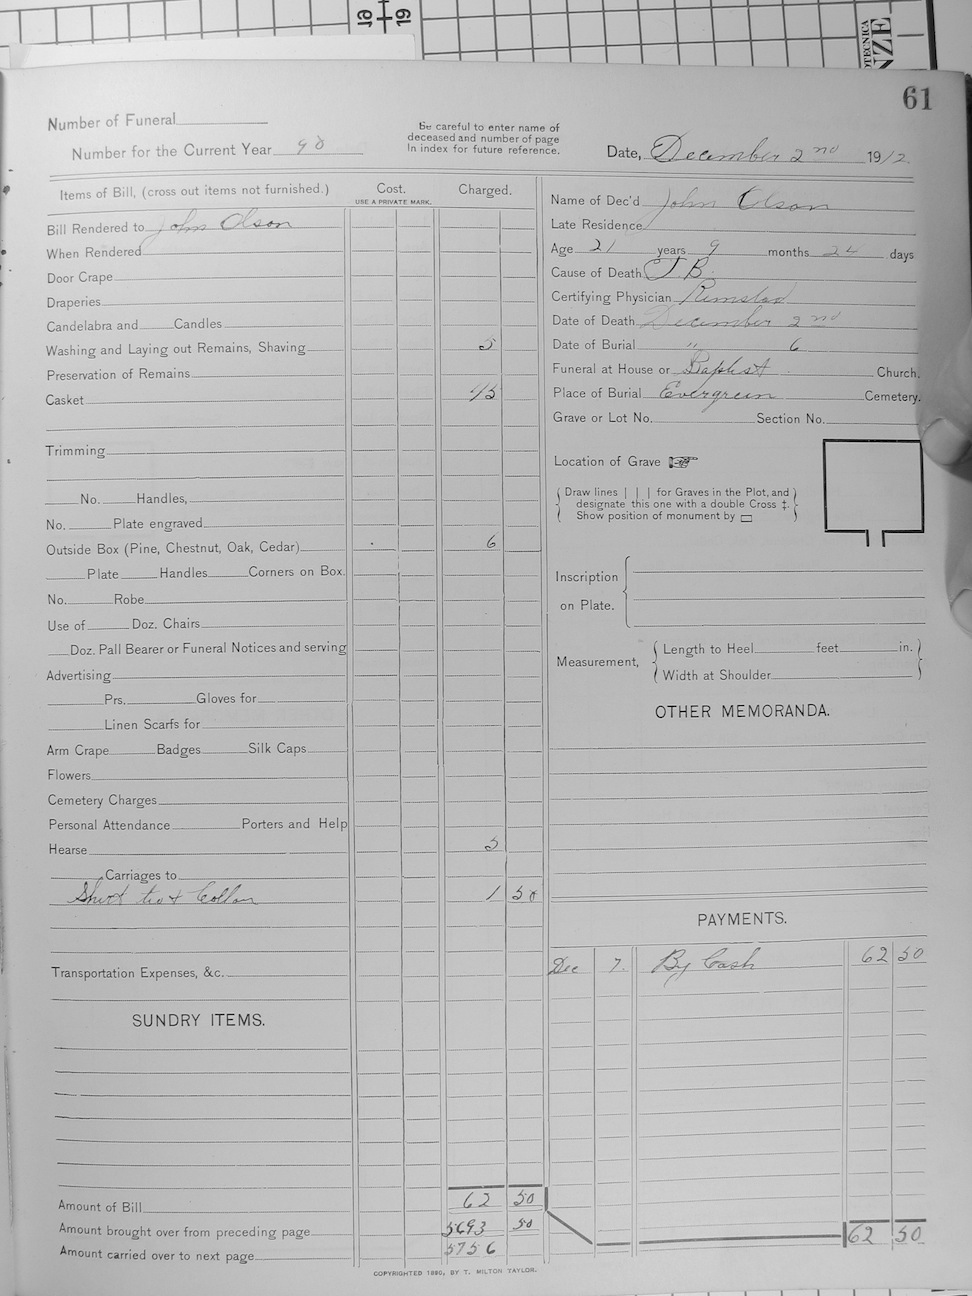 61
Number of Funeral
Number for the Current Year 98
Be careful to enter name of
deceased and number of page
In index for future reference.
Date, December 2nd 1912
Items of Bill, (cross out items not furnished.) Cost. Charged.
USE A PRIVATE MARK.
Bill Rendered to John Olson
When Rendered
Door Crape
Draperies
Candelabra and Candles
Washing and Laying out Remains, Shaving 5
Preservation of Remains
Casket 45
Trimming
No. Handles,
No. Plate engraved
Outside Box (Pine, Chestnut, Oak, Cedar) 6
Plate Handles Corners on Box.
No. Robe
Use of Doz. Chairs
Doz. Pall Bearer or Funeral Notices and serving
Advertising
Prs. Gloves for
Linen Scarfs for
Arm Crape Badges Silk Caps
Flowers
Cemetery Charges
Personal Attendance Porters and Help
Hearse 5
Carriages to
Shirt tie & Collar 1 50
Transportation Expenses, &c.
SUNDRY ITEMS.
Amount of Bill 62 50
Amount brought over from preceding page 5693 50
Amount carried over to next page 5756
Name of Dec'd John Olson
Late Residence
Age 21 years 9 months 24 days
Cause of Death T. B.
Certifying Physician Rimstad
Date of Death December 2nd
Date of Burial " 6
Funeral at House or Baptist Church.
Place of Burial Evergreen Cemetery.
Grave or Lot No. Section No.
Location of Grave
Draw lines | | | for Graves in the Plot, and
designate this one with a double Cross ‡.
Show position of monument by ▭
Inscription
on Plate.
Measurement,
Length to Heel feet in.
Width at Shoulder
OTHER MEMORANDA.
PAYMENTS.
Dec 7. By Cash 62 50
62 50
COPYRIGHTED 1890, BY T. MILTON TAYLOR.